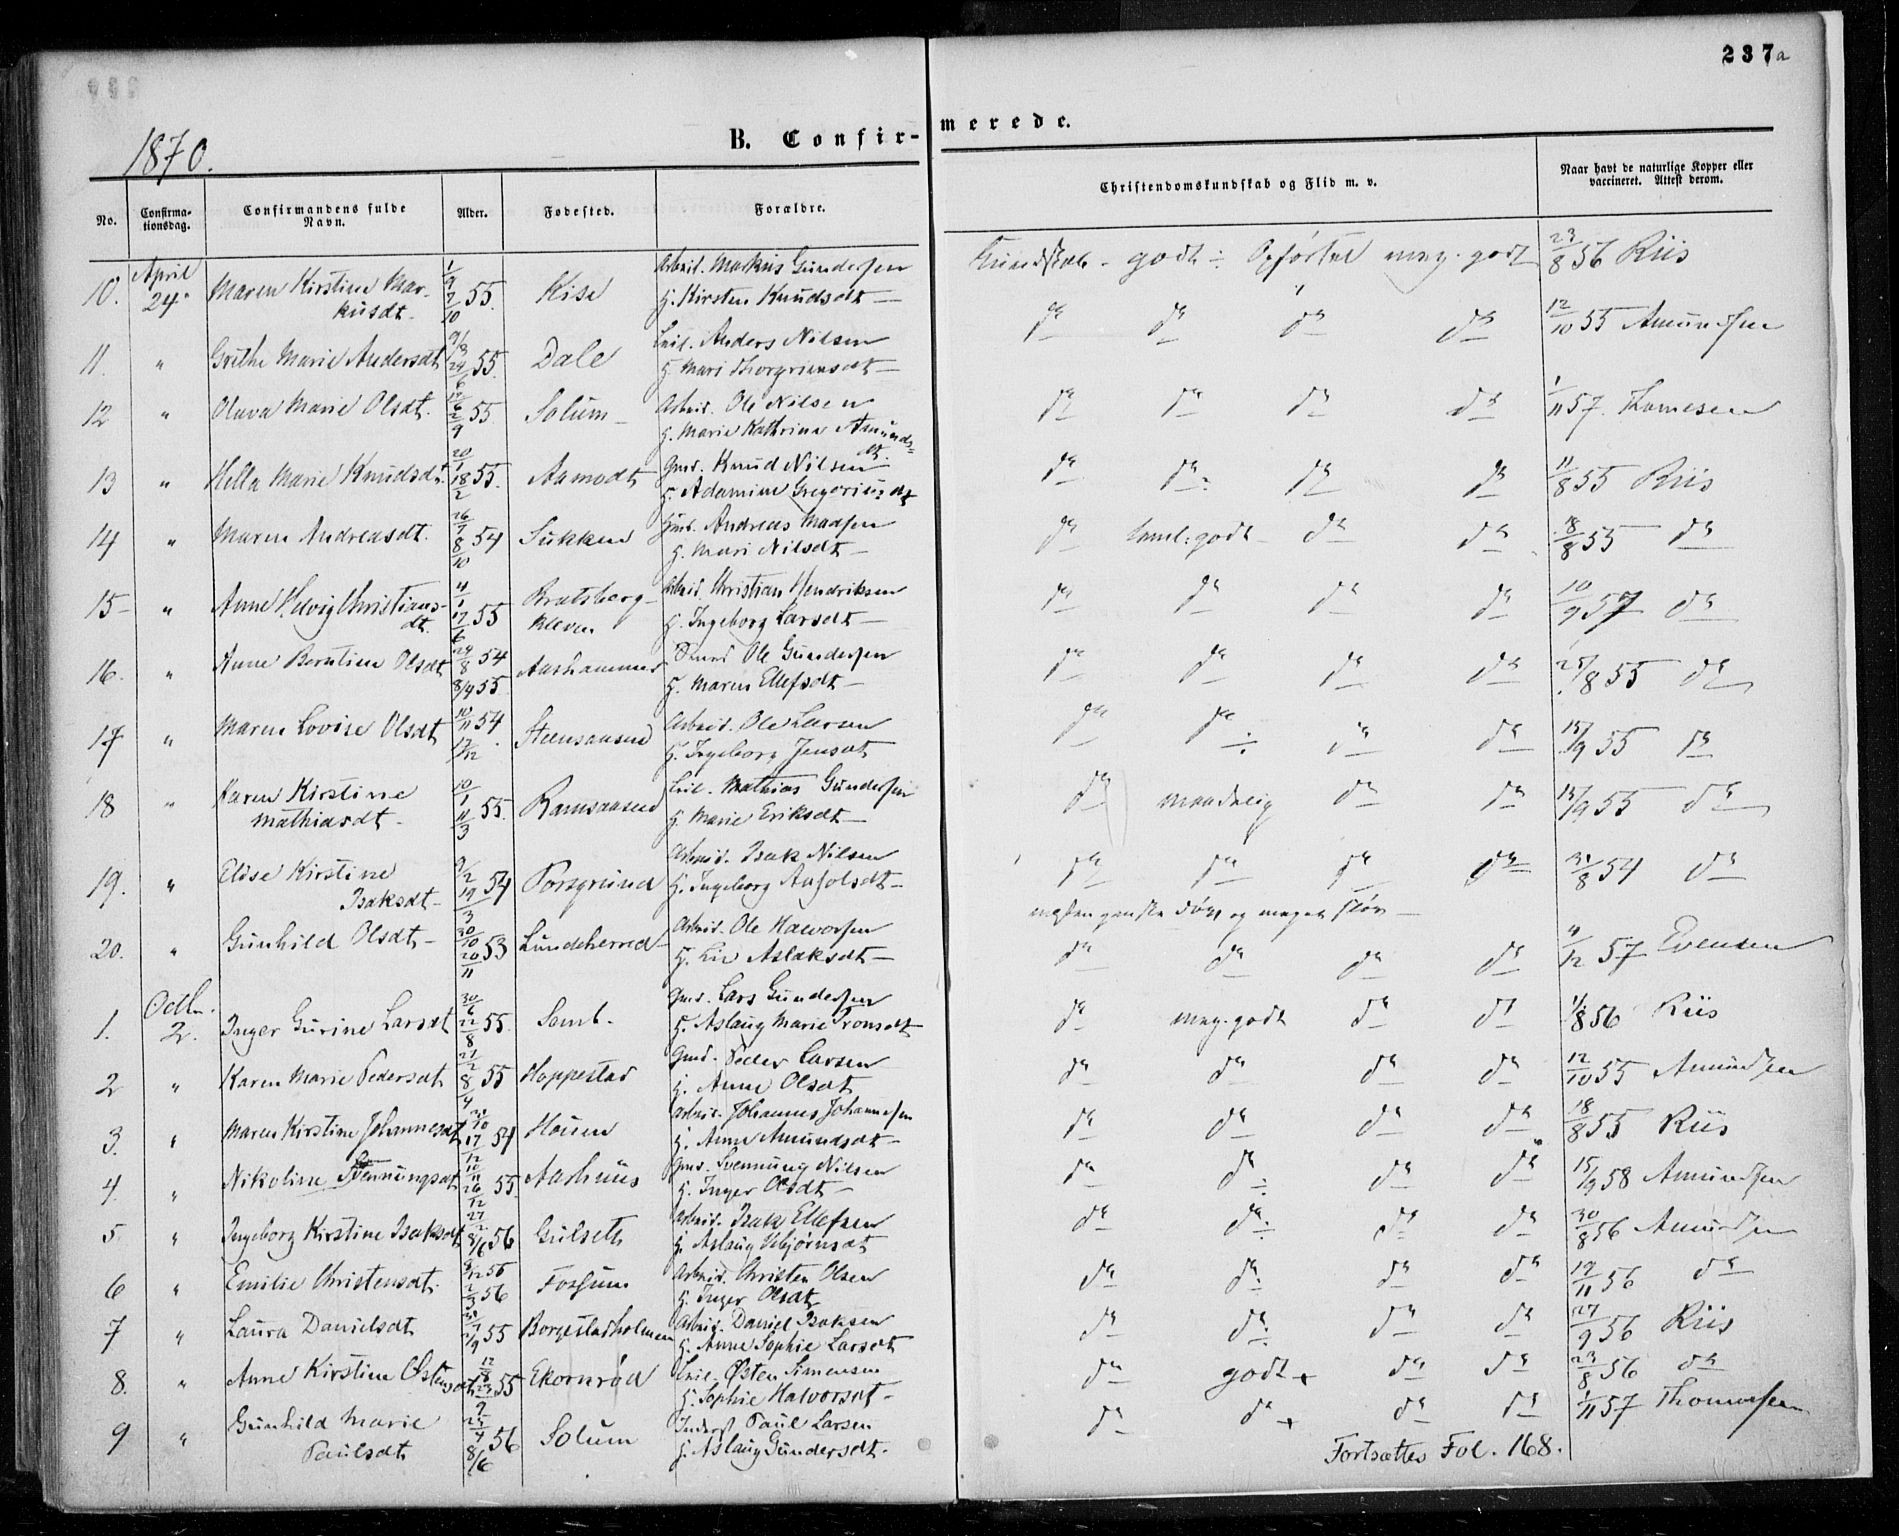 237a
1870.
B. Confir-merede.
No. Confirma-tionsdag. Confirmandens fulde Navn. Alder. Fødested. Forældre. Christendomskundskab og Flid m. v. Naar havt de naturlige Kopper eller vaccineret. Attest derom.
10. April 24. Maren Kirstine Mar- 55. Kise Arbeid. Markus Gundersen Kundskab godt Opførsel meg. godt 23/8 56 Riis
kusdt. H. Kirsten Knudsdt
11. " Grethe Marie Andersdt 24/6 55. Dale Leil. Anders Nilsen do do do do 12/10 55 Amundsen
H. Mari Thorgrimsdt
12 " Olava Marie Olsdt. 55. Solum Arbeid. Ole Nilsen do do do do 1/11 57. Thomesen
H. Marie Kathrine Amunds-
dt.
13 " Hella Marie Knudsdt. 20/1 18/2 55. Aamodt Gmd. Knud Nilsen do do do do 11/8 55 Riis
H. Adamine Gregoriusdt
14 " Maren Andreasdt. 8/10 54 Sukken Husm. Andreas Madsen do Saml: godt do do 18/8 55 do
H. Mari Nilsdt
15 " Anne Helvig Christians- 17/6 55 Bratsberg- Arbeid. Christian Hendriksen do do do do 10/9 57 do
dt. kleven H. Ingeborg Larsdt
16. " Anne Berntine Olsdt 24/8 54 Aashammer Ole Gundersen do do do do 25/8 55 do
8/4 55 H. Maren Ellefsdt
17 " Maren Lovise Olsdt 10/11 54 Steensaasen Arbeid. Ole Larsen do do do do 15/9 55 do
17/12 H. Ingeborg Jensdt
18 " Karen Kirstine 10/1 55. Ramsaasen Leil. Mathias Gundersen do maadelig do do 15/9 55 do
Mathiasdt 11/3 H. Marie Eriksdt
19. " Elise Kirstine 54 Porsgrund Arbeid. Isak Nilsen do do do do 31/8 54 do
Isaksdt 19/3 H. Ingeborg
næsten ganske døv og meget sløv
20. " Gunhild Olsdt 30/10 53 Lundeherred Arbeid. Ole Halvorsen do do do do 11/12 57 Evensen
20/11 H. Liv Aslaksdt
1. Octbr. 2. Inger Gurine Larsdt 30/6 22/8 55. Semb. Gmd. Lars Gundersen do meg. godt do do 1/8 56 Riis
H. Aslaug Marie Tronsdt
2 " Karen Marie Pedersdt 8/4 55 Hoppestad Gmd. Peder Larsen do do do do 12/10 55 Amundsen
H. Anne Olsdt
3. " Maren Kirstine Johannesdt 17/12 54 Houen Arbeid. Johannes Johannesen do do do do 18/8 55 Riis
H. Anne Amundsdt
4. " Nikoline Svennungsdt 10/11 26/12 55 Aarhuus Gmd. Svennung Nilsen do do do do 15/9 58 Amundsen
H. Inger Olsdt
5 " Ingeborg Kirstine Isaksdt 27/2 8/6 56 Gulseth Arbeid. Isak Ellefsen do do do do 30/8 56 Amundsen
H. Aslaug Ubjørnsdt
6 " Emilie Christensdt. 55 2/3 56 Fossum Arbeid. Christen Olsen do do do do 19/11 56 do
H. Inger Olsdt
7 " Laura Danielsdt 55 Borgestadholmen Arbeid. Daniel Isaksen do do do do 27/9 56 Riis
H. Anne Sophie Larsdt
8. " Anne Kirstine Østensdt 55 Ekornrød Leil. Østen Simensen do godt + do do 23/8 56 do
H. Sophie Halvorsdt
9 " Gunhild Marie 25/4 56 Solum Inderst Paul Larsen do do + do do 1/11 57 Thomesen
Paulsdt 8/6 H. Aslaug Gundersdt.
Fortsættes Fol. 168.